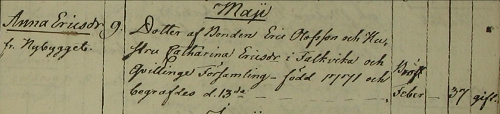 Maji
Anna Ericsdr 9. Dotter af Bonden Eric Olofsson och Hu-
fr. Nybygget stru Catharina Ericsdr i Falkvika och
Qvillinge Församling - född 1771 och Bröst
begrafdes d. 13de Feber - 37 gift.